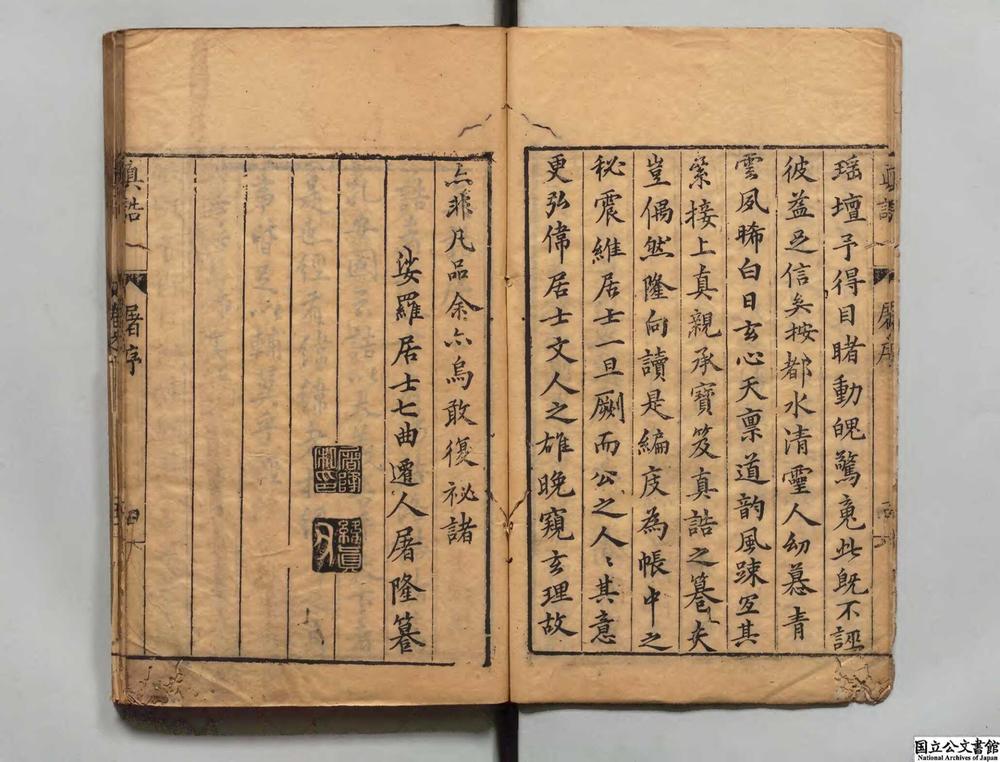 瑶壇予得目睹動魄驚䰟此既不誣
彼葢足信矣按都水清靈人幼慕青
雲夙睎白日玄心天禀道韵風踈宐其
縈接上真親承寶笈真誥之篹夫
豈偶然隆向讀是編庋為帳中之
秘震維居士一旦劂而公之人〻其意
更弘偉居士文人之雄晚窺玄理故
亦非凡品余亦烏敢復祕諸
娑羅居士七曲遷人屠隆篹
屠隆
真誥
屠序
国立公文書館
National Archives of Japan